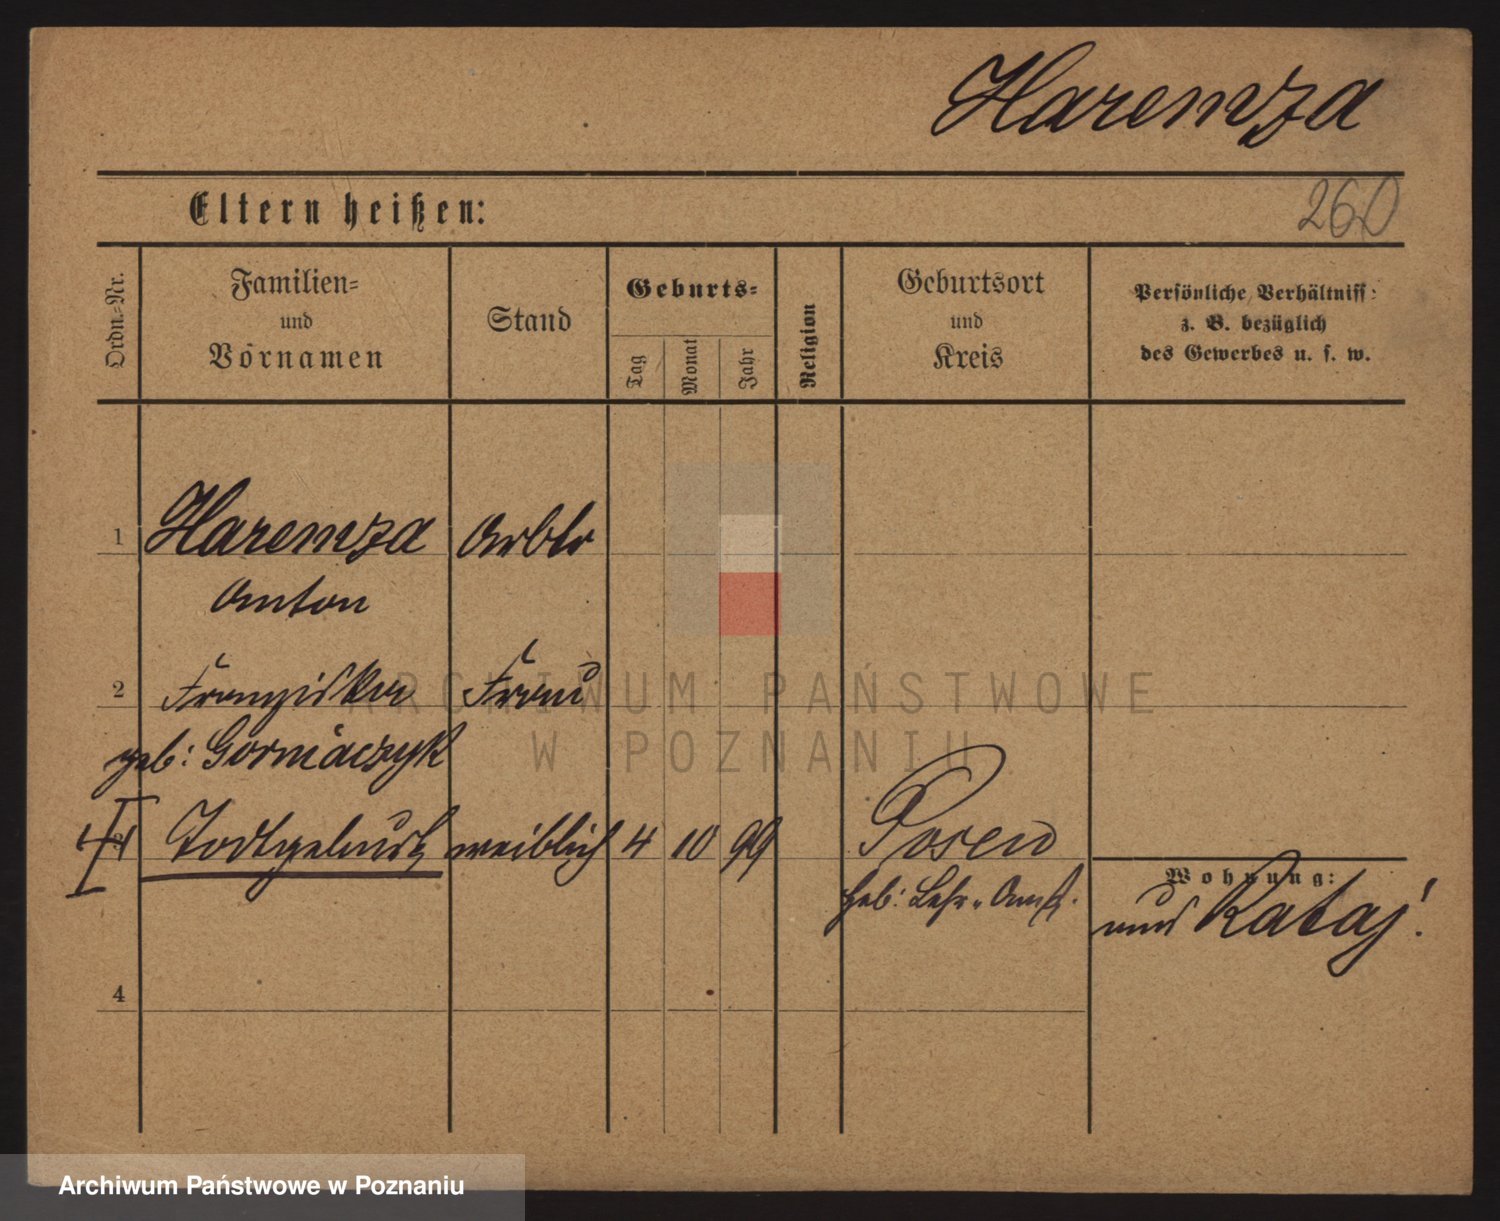 Haremza
Eltern heißen:
260
Ordn.-Nr.
Familien-
und
Vornamen
Stand
Geburts-
Tag
Monat
Jahr
Religion
Geburtsort
und
Kreis
Persönliche Verhältniss:
z. B. bezüglich
des Gewerbes u. s. w.
1 Haremza Arbtr
Anton
2 Franziska Frau
geb: Gorniaczyk
Todtgeburt weiblich 4 10 99 Posen
Wohnung:
geb: Lehr-Anst.
Rataj!
4
ARCHIWUM PAŃSTWOWE
W POZNANIU
Archiwum Państwowe w Poznaniu